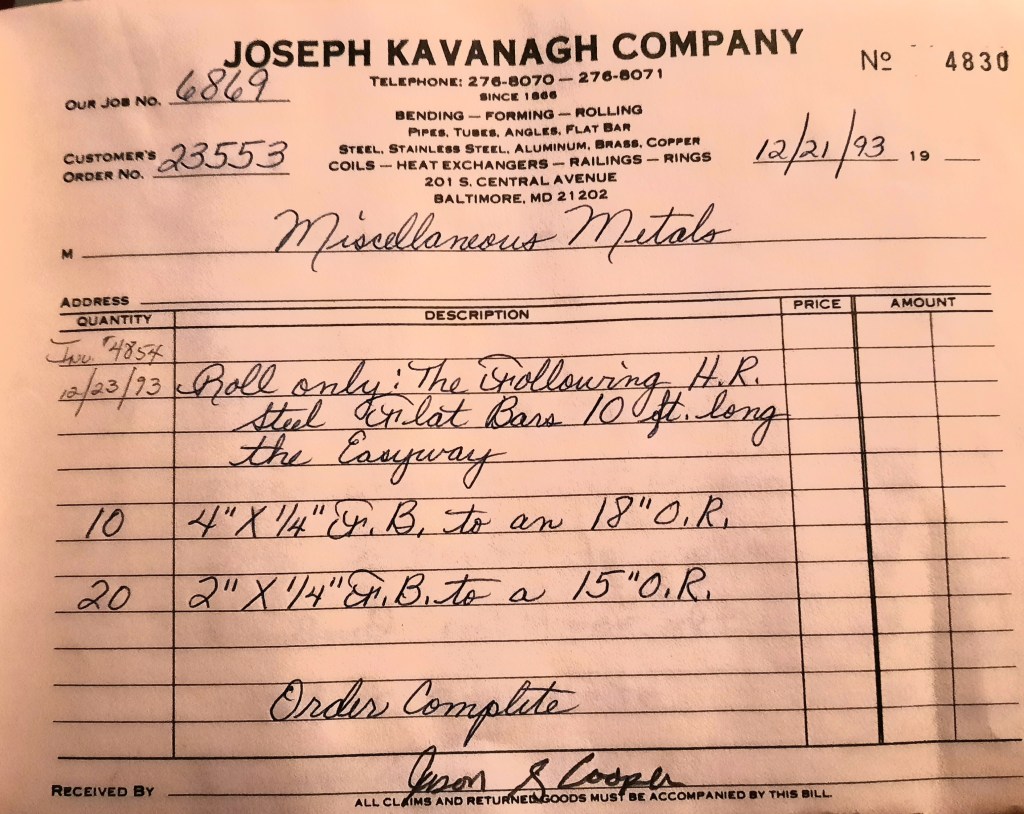 JOSEPH KAVANAGH COMPANY
Nº 4830
TELEPHONE: 276-8070 — 276-8071
SINCE 1866
OUR JOB NO. 6869
BENDING — FORMING — ROLLING
PIPES, TUBES, ANGLES, FLAT BAR
STEEL, STAINLESS STEEL, ALUMINUM, BRASS, COPPER
COILS — HEAT EXCHANGERS — RAILINGS — RINGS
CUSTOMER'S ORDER NO. 23553
12/21/93 19
201 S. CENTRAL AVENUE
BALTIMORE, MD 21202
M Miscellaneous Metals
ADDRESS
QUANTITY DESCRIPTION PRICE AMOUNT
Inv. #4854
12/23/93 Roll only: The Following H.R.
Steel Flat Bars 10 ft. long
the Easyway
10 4" X 1/4" F.B. to an 18" O.R.
20 2" X 1/4" F.B. to a 15" O.R.
Order Complete
RECEIVED BY Jason S Cooper
ALL CLAIMS AND RETURNED GOODS MUST BE ACCOMPANIED BY THIS BILL.